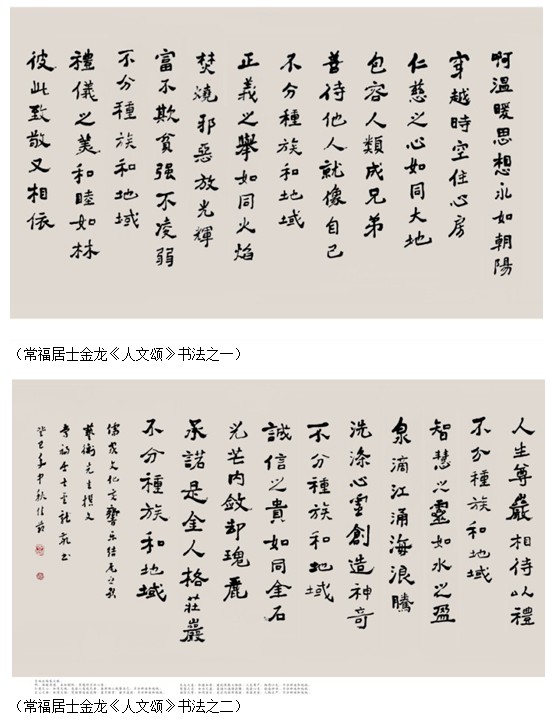 啊溫暖思想永如朝陽
穿越時空住心房
仁慈之心如同大地
包容人類成兄弟
善待他人就像自己
不分種族和地域
正義之舉如同火焰
焚燒邪惡放光輝
富不欺貧强不凌弱
不分種族和地域
禮儀之美和睦如林
彼此致敬又相依
（常福居士金龙《人文颂》书法之一）
人生尊嚴相待以禮
不分種族和地域
智慧之靈如水之盈
泉滴江涌海浪騰
洗滌心靈創造神奇
不分種族和地域
誠信之貴如同金石
光芒内斂却瑰麗
承諾是全人格莊嚴
不分種族和地域
儒家文化交響樂结尾之歌
藝衡先生撰文
常福居士金龍敬書
癸巳年中秋佳節
（常福居士金龙《人文颂》书法之二）